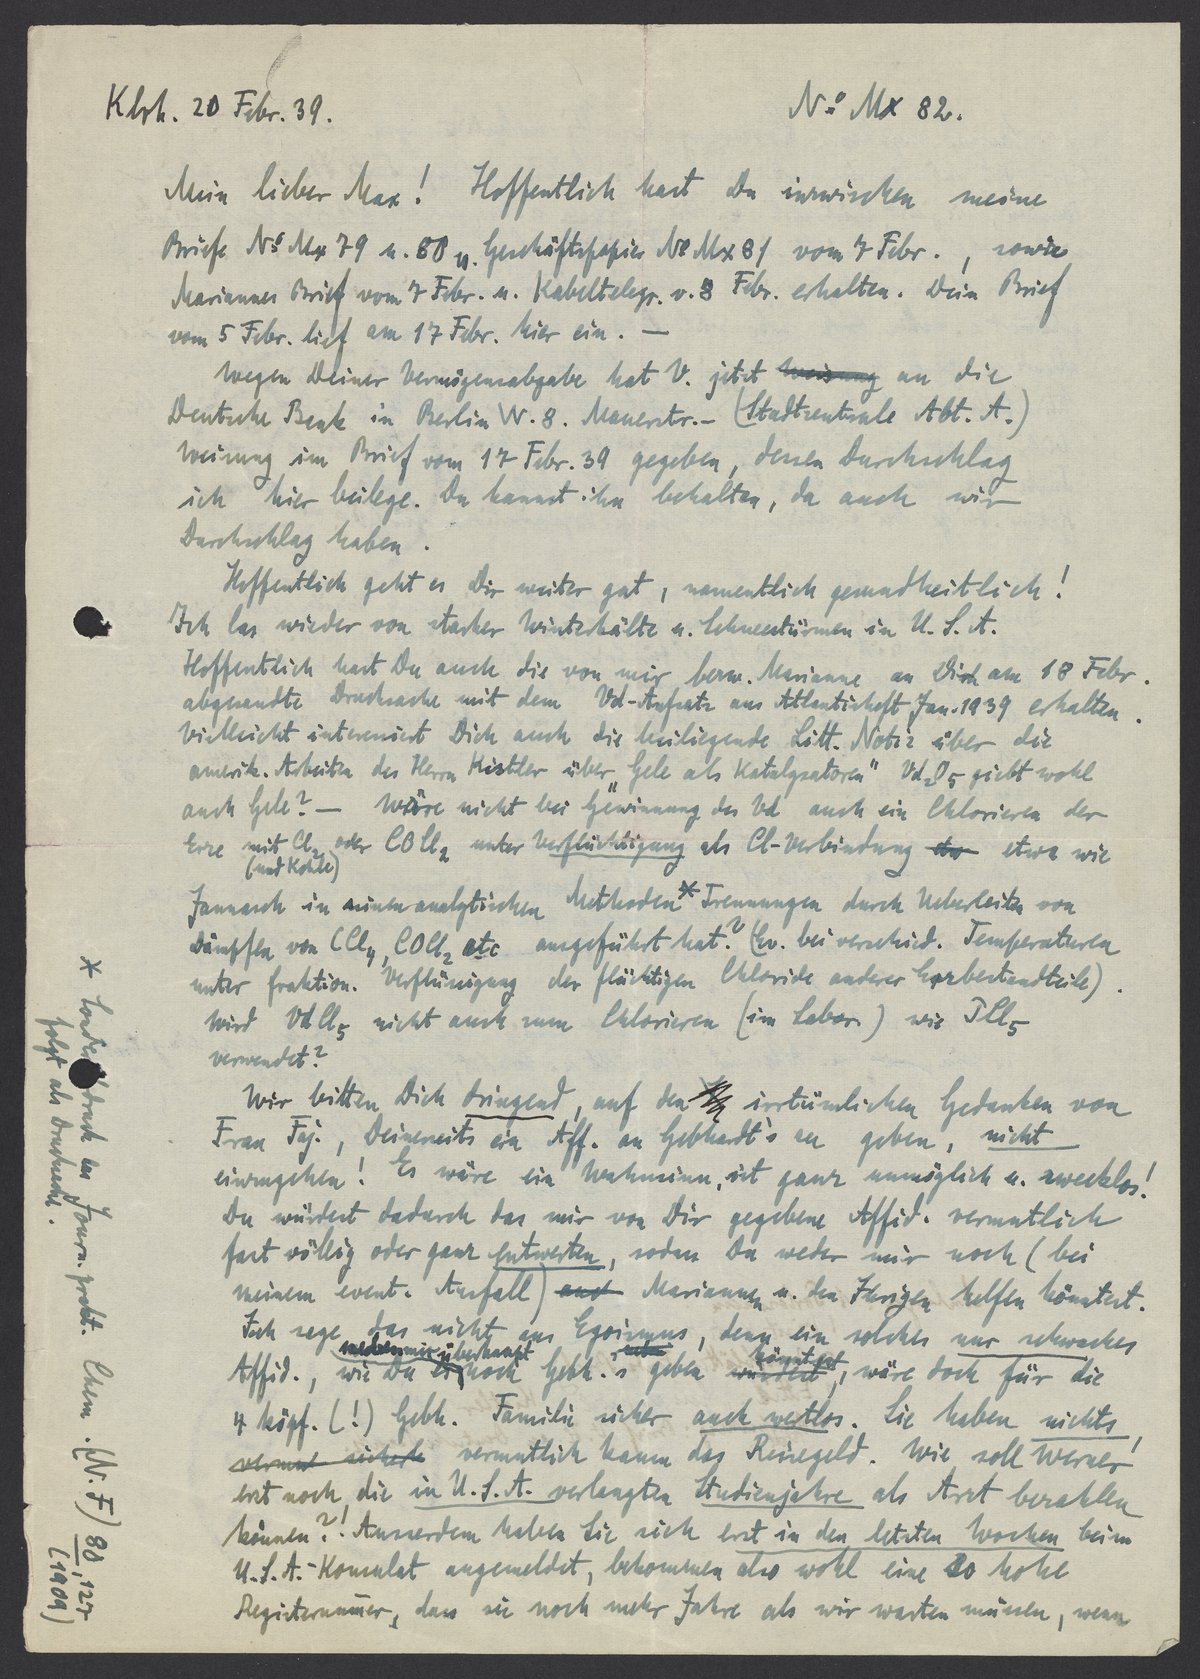 Klrh. 20 Febr. 39.
No Mx 82.
Mein lieber Max! Hoffentlich hast Du inzwischen meine
Briefe No Mx 79 u. 80 u. Geschäftspapier No Mx 81 vom 7 Febr., sowie
Mariannes Brief vom 7 Febr. u. Kabeltelegr. v. 8 Febr. erhalten. Dein Brief
vom 5 Febr. lief am 17 Febr. hier ein. —
Wegen Deiner Vermögensabgabe hat V. jetzt Weisung an die
Deutsche Bank in Berlin W. 8. Mauerstr. – (Stadtzentrale Abt. A.)
Weisung im Brief vom 17 Febr. 39 gegeben, dessen Durchschlag
ich hier beilege. Du kannst ihn behalten, da auch wir
Durchschlag haben.
Hoffentlich geht es Dir weiter gut, namentlich gesundheitlich!
Ich las wieder von starker Winterkälte u. Schneestürmen in U.S.A.
Hoffentlich hast Du auch die von mir bezw. Marianne an Dich am 18 Febr.
abgesandte Drucksache mit dem Vd-Aufsatz aus Atlantisheft Jan. 1939 erhalten.
Vielleicht interessiert Dich auch die beiliegende Litt. Notiz über die
amerik. Arbeiten des Herrn Kistler über „Gele als Katalysatoren" Vd2O5 giebt wohl
auch Gele? — Wäre nicht bei Gewinnung des Vd auch ein Chlorieren der
Erze mit Cl2 oder COCl2 unter Verflüchtigung als Cl-Verbindung etwa wie
(und Kohle)
Jannasch in seinen analytischen Methoden * Trennungen durch Ueberleiten von
Dämpfen von CCl4, COCl2 etc ausgeführt hat? (Ev. bei verschied. Temperaturen
unter fraktion. Verflüssigung der flüchtigen Chloride anderer Erzbestandteile).
Wird VdCl5 nicht auch zum Chlorieren (im Labor.) wie PCl5
verwendet?
Wir bitten Dich dringend, auf den irrtümlichen Gedanken von
Frau Faj., Deinerseits ein Aff. an Gebhardt's zu geben, nicht
einzugehen! Es wäre ein Wahnsinn, ist ganz unmöglich u. zwecklos!
Du würdest dadurch das mir von Dir gegebene Affid. vermutlich
fast völlig oder ganz entwerten, sodass Du weder mir noch (bei
meinem event. Ausfall) auch Mariannen u. den Ihrigen helfen könntest.
Ich sage das nicht aus Egoismus, denn ein solches nur schwaches
neben mir überhaupt könntest
Affid., wie Du es noch Gebh.'s geben würdest, wäre doch für die
4 köpf. (!) Gebh. Familie sicher auch wertlos. Sie haben nichts,
vermutlich kaum das Reisegeld. Wie soll Werner
erst noch die in U.S.A. verlangten Studienjahre als Arzt bezahlen
können?! Ausserdem haben Sie sich erst in den letzten Wochen beim
U.S.A.-Konsulat angemeldet, bekommen also wohl eine so hohe
Registernummer, dass sie noch mehr Jahre als wir warten müssen, wenn
* Sonderabdruck im Journ. prakt. Chem. (N. F.) 80, 127 (1909)
folgt als Drucksache.